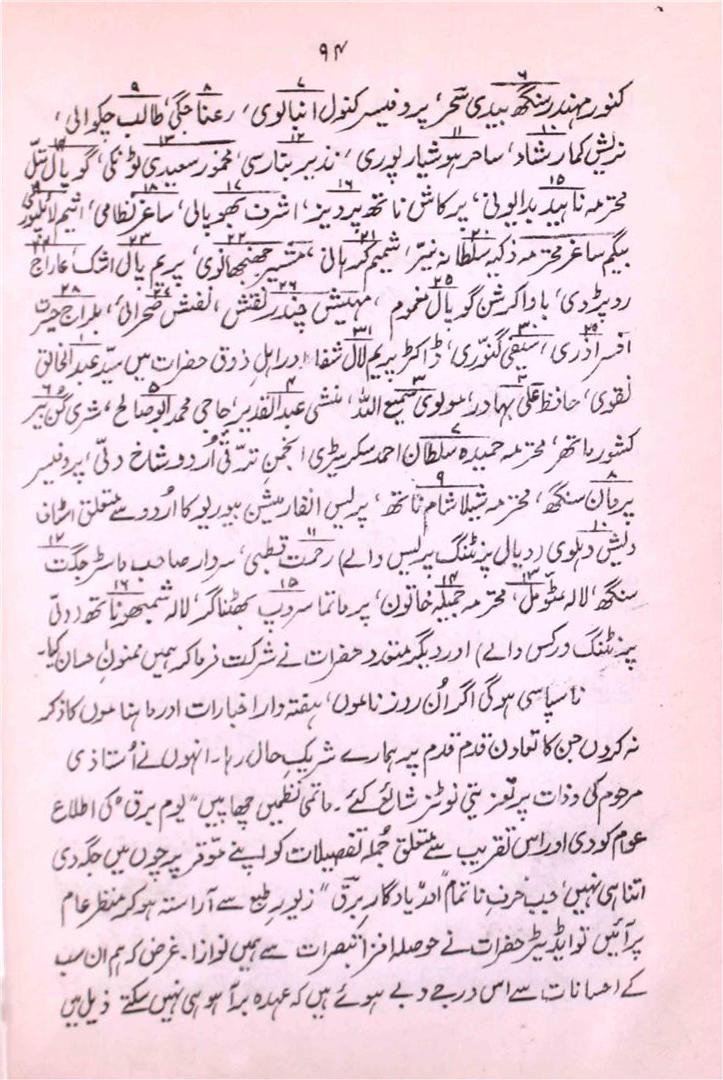 ۹۴
کنور مہندر سنگھ بیدی سحر۶، پروفیسر کنول انبالوی۷، رعنا جگی۸، طالب چکوالی۹،
نریش کمار شاد۱۰، ساحر ہوشیارپوری۱۱، نذیر بنارسی۱۲، مخمور سعیدی ٹونکی۱۳، گوپال متل۱۴
محترمہ ناہید بدایونی۱۵، پرکاش ناتھ پرویز۱۶، اشرف بھوپالی۱۷، ساغر نظامی۱۸، شمیم لائلپوری۱۹
بیگم ساغر محترمہ ذکیہ سلطانہ نیّر۲۰، شمیم کرہانی۲۱، مشیر جھنجھانوی۲۲، پریم پال اشک۲۳، عاراج
روپڑدی، باوا کرشن گوپال مغموم۲۵، مہیش چندر نقش۲۶، نقش صحرائی۲۷، بلراج حیرت۲۸
افسر آذری۲۹، سیفی گنّوری۳۰، ڈاکٹر پریم لال شفا۳۱ اور اہلِ ذوق حضرات میں سیّد عبدالخالق۱
نقوی، حافظ علی بہادر۲، مولوی سمیع اللہ۳، منشی عبدالقدیر۴، حاجی محمد ابو صالح۵، شری گن بیر۶
کشور ماتھر، محترمہ حمیدہ سلطان احمد سکریٹری۷ انجمنِ ترقی اُردو شاخ دلّی، پروفیسر
پریمان سنگھ۸، محترمہ شیلا شام ناتھ۹، پریس انفارمیشن بیوریو کا اُردو سے متعلق اسٹاف
دلیش دہلوی۱۰ (دیالی پرنٹنگ پریس والے) رحمت قطبی۱۱، سردار صاحب ماسٹر جگت۱۲
سنگھ، لالہ مٹّومل۱۳، محترمہ جمیلہ خاتون۱۴، پرماتما سروپ بھٹناگر۱۵، لالہ شمبھو ناتھ۱۶ (دلّی
پرنٹنگ ورکس والے) اور دیگر متعدد حضرات نے شرکت فرما کر ہمیں ممنونِ احسان کیا۔
ناسپاسی ہوگی اگر اُن روز ناموں، ہفتہ وار اخبارات اور ماہناموں کا ذکر
نہ کروں جن کا تعاون قدم قدم پر ہمارے شریکِ حال رہا۔ انہوں نے اُستاذی
مرحوم کی وفات پر تعزیتی نوٹز شائع کئے۔ ماتمی نظمیں چھاپیں "یومِ برق" کی اطلاع
عوام کو دی اور اس تقریب سے متعلق جملہ تفصیلات کو اپنے موّقر پرچوں میں جگہ دی
اتنا ہی نہیں، جب حرفِ ناتمام" اور "یادگارِ برق" زیورِ طبع سے آراستہ ہو کر منظرِ عام
پر آئیں تو ایڈیٹر حضرات نے حوصلہ افزا تبصرات سے ہمیں نوازا۔ غرض کہ ہم ان سب
کے احسانات سے اس درجے دبے ہوئے ہیں کہ عہدہ برآ ہو ہی نہیں سکتے ذیل میں